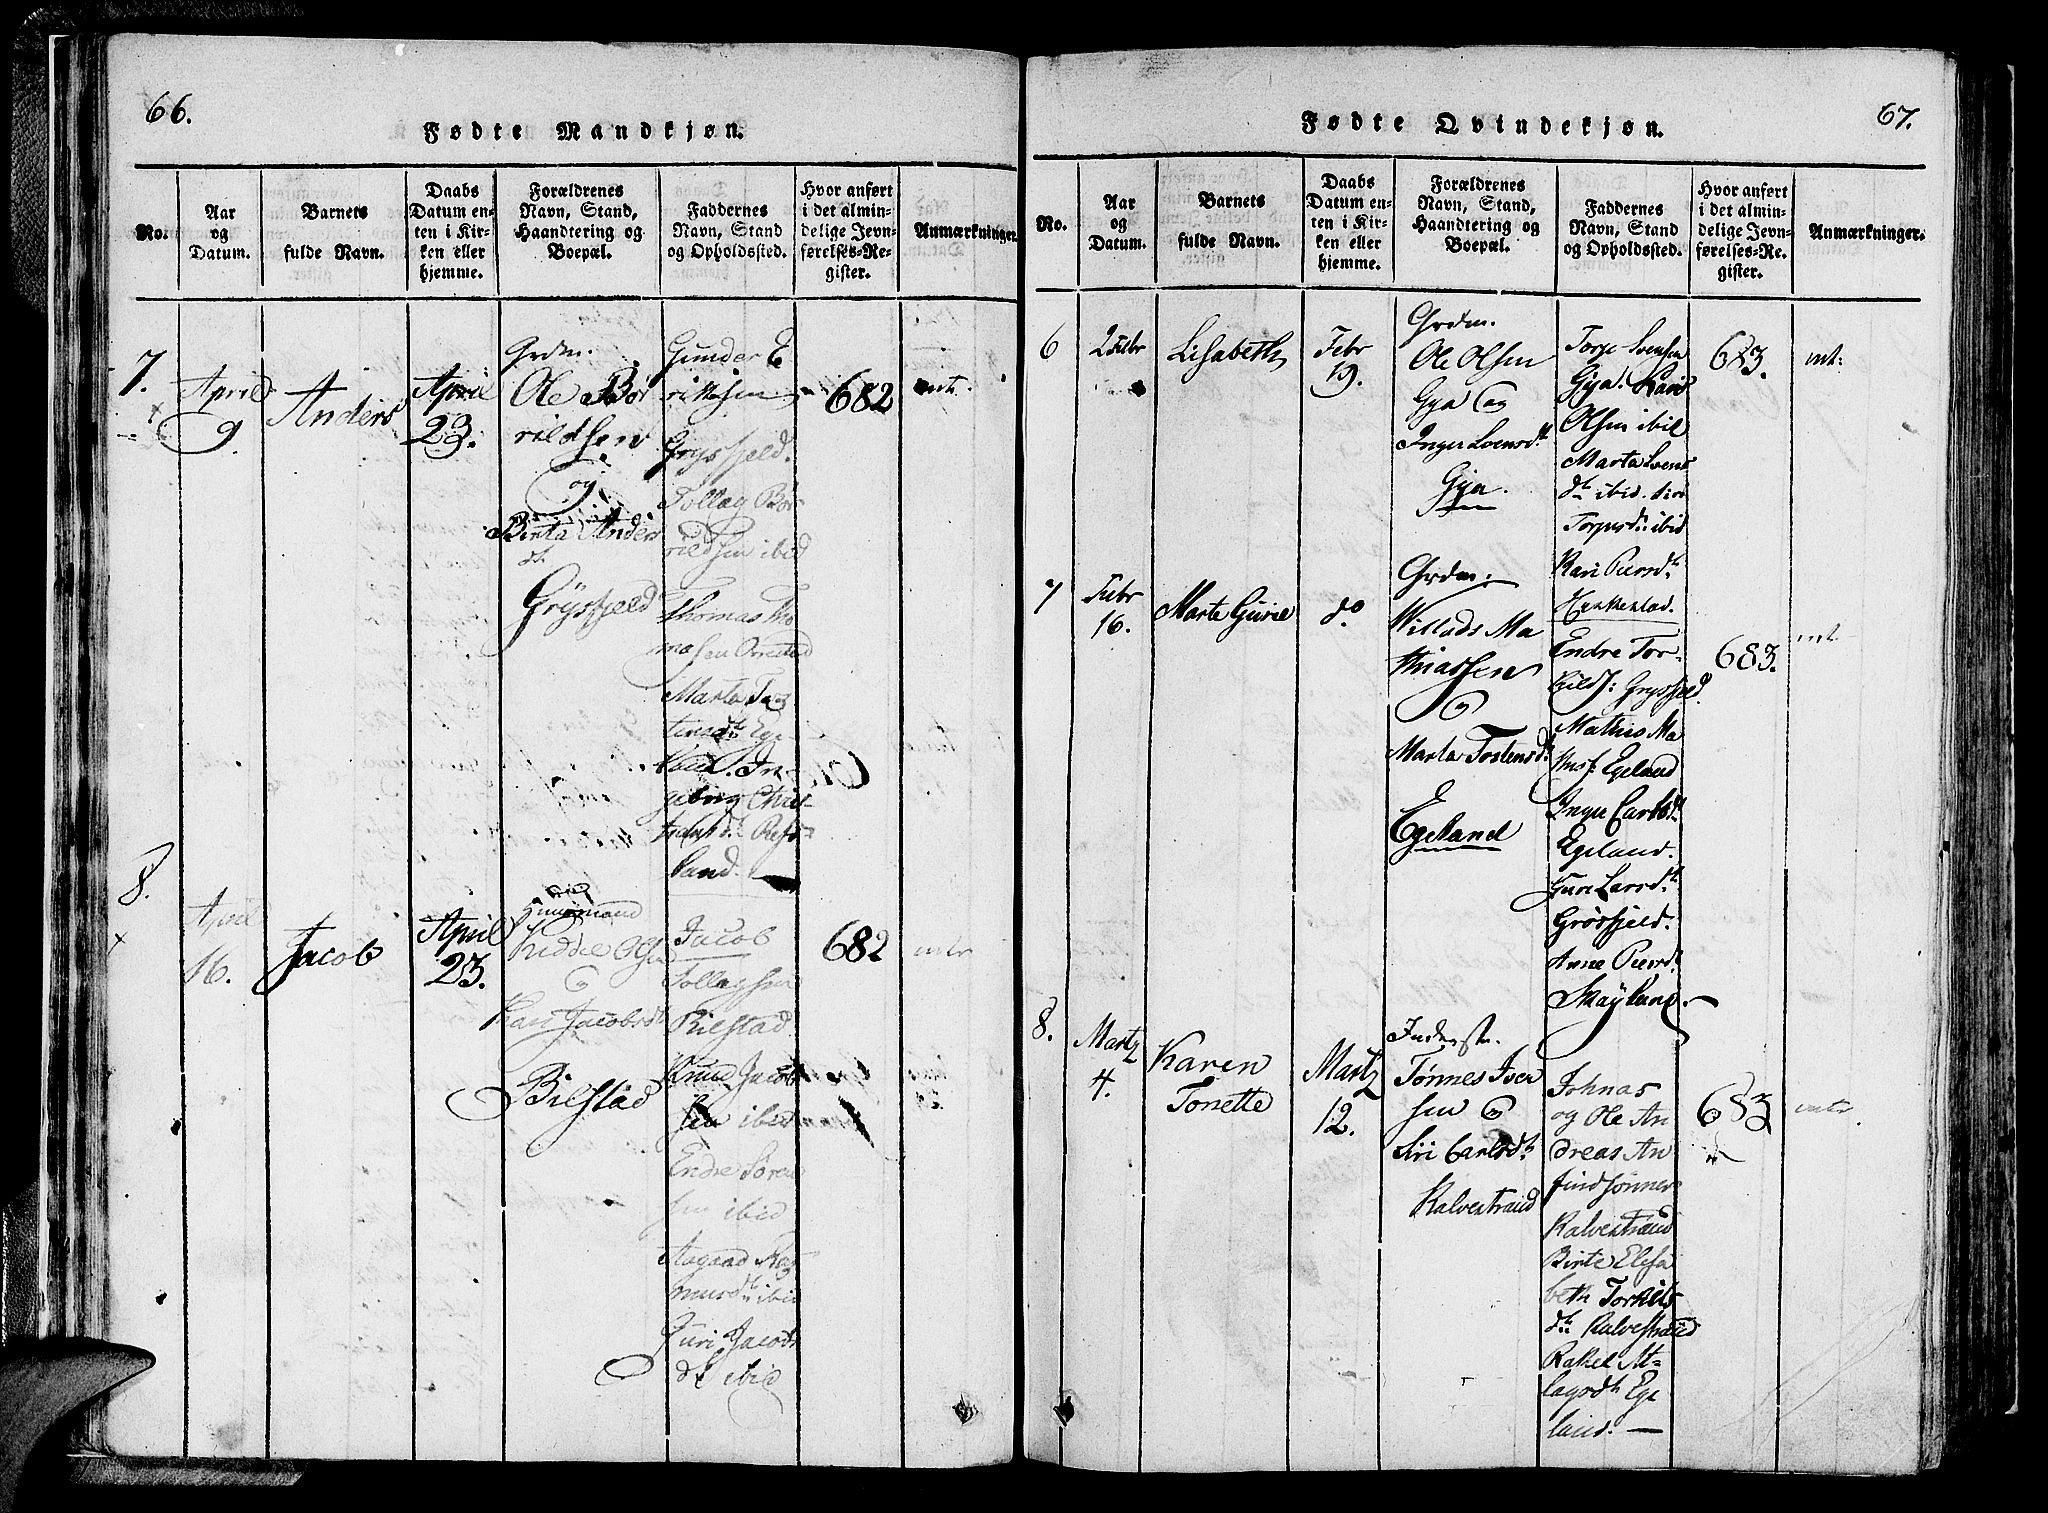 66.
Fødte Mandkjøn.
No.
Aar
og
Datum.
Barnets
fulde Navn.
Daabs
Datum en-
ten i Kir-
ken eller
hjemme.
Forældrenes
Navn, Stand,
Haandtering og
Boepæl.
Faddernes
Navn, Stand
og Opholdssted.
Hvor anført
i det almin-
delige Jevn-
førelses-Re-
gister.
Anmærkninger.
7.
April
9
Anders
April
23.
Grdm.
Ole Bør
rildsen
og
Birta Anders
dt
Grysfjeld
Gunder E
riksen
Grysfjeld.
Tollag Bør
rildsen ibid
Thomas Tho
masen Orrestad
Marta To
Ege
land. In
geborg Chris
land.
682
8.
April
16.
Jacob
April
23.
Huusmand
Ole Olsen
Kari Jacobsdt
Bilstad
Jacob
Tollagsen
Bilstad
Knud Jacob
sen ibid
Endre Søren
sen ibid
Aagaad
ibid
Juri Jacobs
dt ibid
682
67.
Fødte Qvindekjøn.
No.
Aar
og
Datum.
Barnets
fulde Navn.
Daabs
Datum en-
ten i Kir-
ken eller
hjemme.
Forældrenes
Navn, Stand,
Haandtering og
Boepæl.
Faddernes
Navn, Stand
og Opholdssted.
Hvor anført
i det almin-
delige Jevn-
førelses-Re-
gister.
Anmærkninger.
6
2 Febr
Lisabeth
Febr
19.
Grdm.
Ole Olsen
Gya og
Inger Svensdt
Gya.
Torje Svensen
Gya.
Olsen ibid
Marta Svens
dt ibid. Siri
ibid
Kari Peersdt
683.
7
Febr
16.
Marta Gurie
do
Grdm:
Willads Ma
thiassen
Marta Tostensdt
Egeland
Endre Tor-
kilds: Grysfjeld
Mathis Ma
Egeland
Inger Carlsdt
Egeland.
Guri Larsdt
Grøsfjeld.
Anne Peersdt
Skaylund.
683.
8.
Martz
4.
Karen
Tonette
Martz
12.
Inderste.
Tønnes Iver
sen
Siri Carlsdt
Kalvestrand
Johnas
og Ole An
dreas An
findsønner
Kalvestrand
Birte Elisa
beth Torkils
dt: Kalvestrand
Rakel At-
lagsdt Ege
land.
683